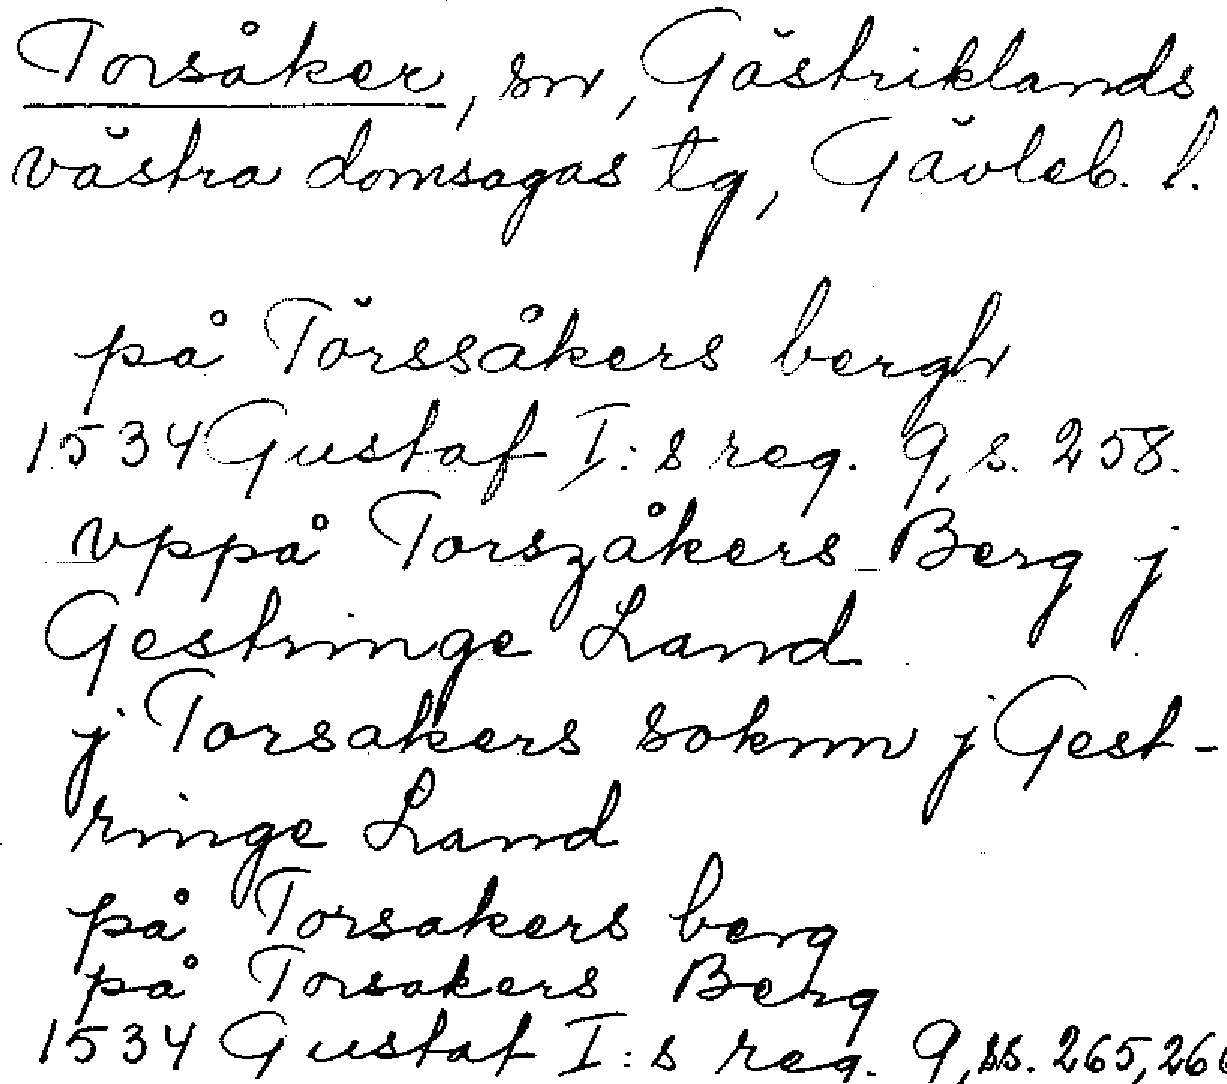 Torsåker, sn, Gästriklands
västra domsagas tg, Gävleb. l.
på Törssåkers bergh
1534 Gustaf I:s reg. 9, s. 258.
vppå Torszåkers Berg j
Gestringe Land
j Torsakers soknn j Gest-
ringe Land
på Torsakers berg
på Torsakers Berg
1534 Gustaf I:s reg. 9, ss. 265, 266